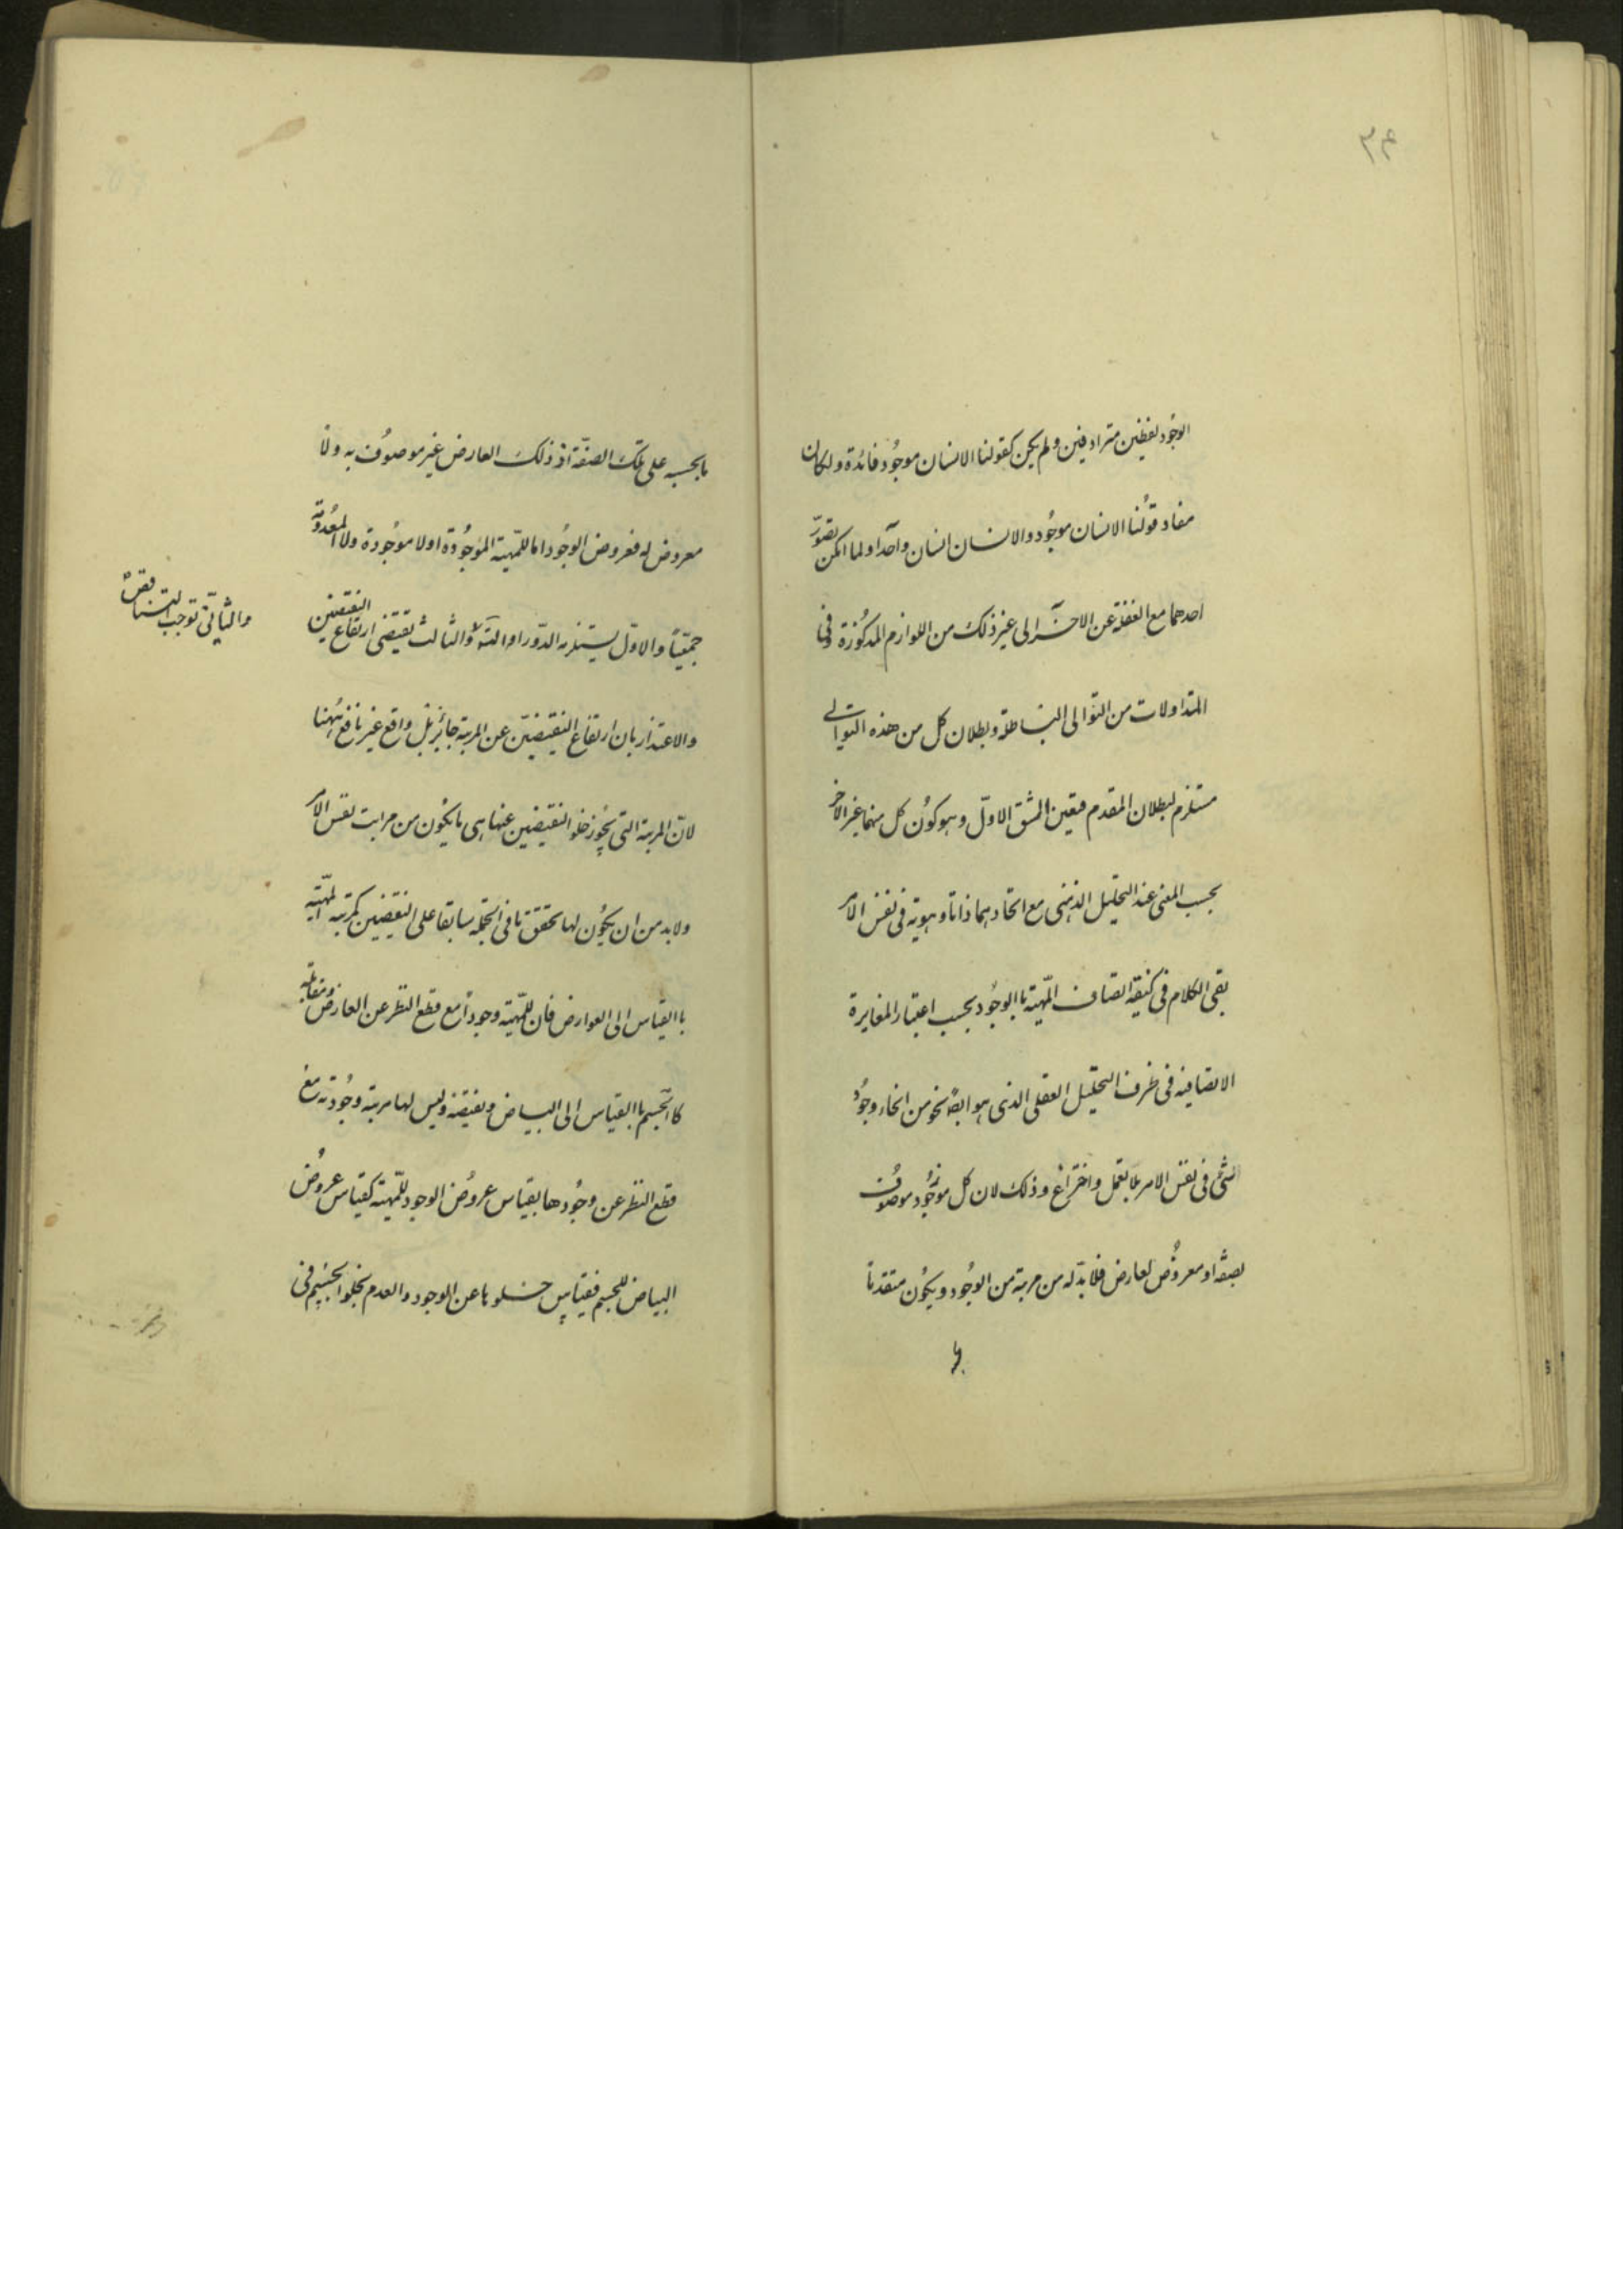 ۳۴
الوجود لفظين مترادفين ولم يكن كقولنا الانسان موجود فائدة ولكان
مفاد قولنا الانسان موجود والانسان انسان واحدا ولما امكن تصور
احدهما مع الغفلة عن الاخر الى غير ذلك من اللوازم المذكورة في
المتداولات من التوالى الباطلة وبطلان كل من هذه التوالى
مستلزم لبطلان المقدم فتعين الشق الاول وهو كون كل منهما غير الاخر
بحسب المعنى عند التحليل الذهنى مع اتحادهما ذاتا وهوية فى نفس الامر
بقى الكلام فى كيفية اتصاف المهية باالوجود بحسب اعتبار المغايرة
الاتصافية فى ظرف التحليل العقلى الذى هو ايضا نحو من انحاء وجود
الشئ فى نفس الامر بلا تعمل واختراع وذلك لان كل موجود موصوف
بصفة او معروض لعارض فلا بد له من مرتبة من الوجود ويكون متقدما
بحسبه على تلك الصفة او ذلك العارض غير موصوف به ولا
معروض له فعروض الوجود اما للمهية الموجودة او لا موجودة ولا المعدومة
جميعا والاول يستلزم الدور او التس والثالث يقتضى ارتفاع النقيضين
والثانى توجب التناقض
والاعتذار بان ارتفاع النقيضين عن المرتبة جائز بل واقع غير نافع ههنا
لان المرتبة التى يجوز خلو النقيضين عنها هى ما يكون من مراتب نفس الامر
ولابد من ان يكون لها تحقق ما فى الجملة سابقا على النقيضين كمرتبة المهية
باالقياس الى العوارض فان للمهية وجودا مع قطع النظر عن العارض ومقابله
كاالجسم باالقياس الى البياض ونقيضه وليس لها مرتبة وجودية مع
قطع النظر عن وجودها بقياس عروض الوجود للمهية كقياس عروض
البياض للجسم فقياس خلوها عن الوجود والعدم بخلو الجسم فى